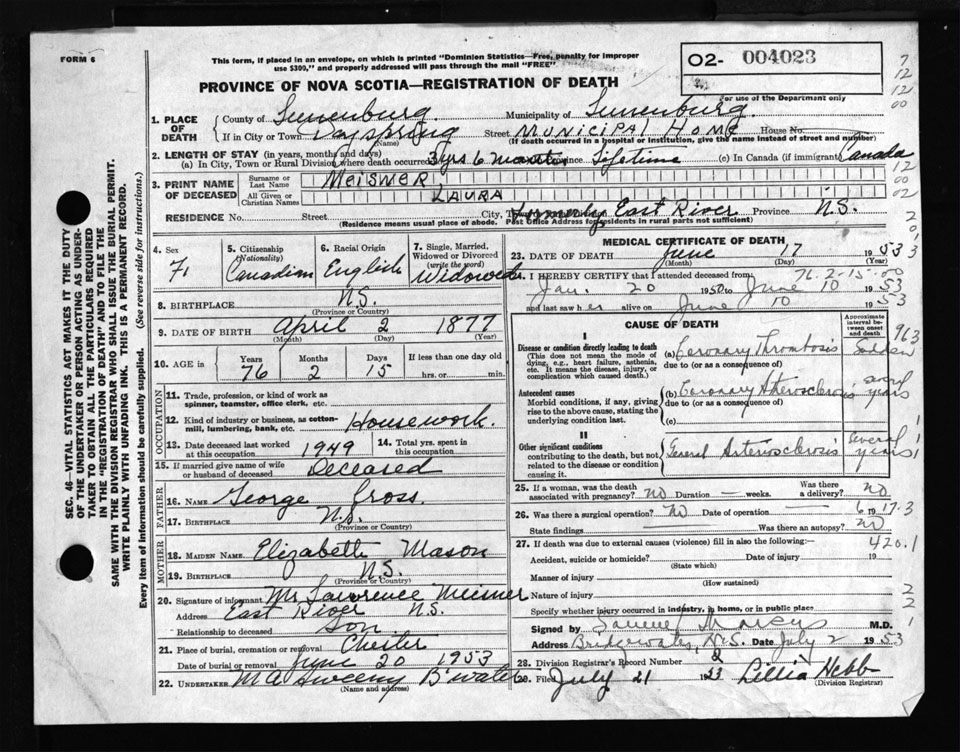 FORM 6
This form, if placed in an envelope, on which is printed "Dominion Statistics—Free, penalty for improper
use $300," and properly addressed will pass through the mail "FREE".
O2- 004023
PROVINCE OF NOVA SCOTIA—REGISTRATION OF DEATH
For use of the Department only
1. PLACE OF DEATH
County of Lunenburg Municipality of Lunenburg
If in City or Town Dayspring (Name) Street MUNICIPAL HOME House No.
(If death occurred in a hospital or institution, give the name instead of street and number)
2. LENGTH OF STAY (in years, months and days)
(a) In City, Town or Rural Division where death occurred 3 yrs 6 months Province Lifetime (c) In Canada (if immigrant) Canada
3. PRINT NAME OF DECEASED
Surname or Last Name MEISNER
All Given or Christian Names LAURA
RESIDENCE No. Street City, formerly East River Province N.S.
(Residence means usual place of abode. Post Office Address for residents in rural parts not sufficient)
4. Sex F.
5. Citizenship (Nationality) Canadian
6. Racial Origin English
7. Single, Married, Widowed or Divorced (write the word) Widowed
8. BIRTHPLACE N.S.
(Province or Country)
9. DATE OF BIRTH April 2 1877
(Month) (Day) (Year)
10. AGE in Years 76 Months 2 Days 15 If less than one day old hrs. or min.
OCCUPATION
11. Trade, profession, or kind of work as
spinner, teamster, office clerk, etc.
12. Kind of industry or business, as cotton-
mill, lumbering, bank, etc. Housework.
13. Date deceased last worked at this occupation 1949
14. Total yrs. spent in this occupation
15. If married give name of wife or husband of deceased Deceased
FATHER
16. NAME George Cross.
17. BIRTHPLACE N.S.
(Province or Country)
MOTHER
18. MAIDEN NAME Elizabeth Mason
19. BIRTHPLACE N.S.
(Province or Country)
20. Signature of informant Mr. Lawrence Meisner
Address East River N.S.
Relationship to deceased Son.
21. Place of burial, cremation or removal Chester
Date of burial or removal June 20 1953
22. UNDERTAKER Sweeny B'water
(Name and address)
MEDICAL CERTIFICATE OF DEATH
23. DATE OF DEATH June 17 1953
(Month) (Day) (Year)
I HEREBY CERTIFY that I attended deceased from 76 2-15-00
Jan. 20 1950 to June 10 1953
and last saw her alive on June 10 1953
CAUSE OF DEATH
Approximate interval between onset and death
I
Disease or condition directly leading to death
(This does not mean the mode of dying, e.g., heart failure, asthenia, etc. It means the disease, injury, or complication which caused death.
(a) Coronary Thrombosis Sudden
due to (or as a consequence of)
963
Antecedent causes
Morbid conditions, if any, giving rise to the above cause, stating the underlying condition last.
(b) Coronary Arteriosclerosis several years
due to (or as a consequence of)
(c)
II
Other significant conditions
contributing to the death, but not related to the disease or condition causing it.
General Arteriosclerosis Several years
25. If a woman, was the death associated with pregnancy? no Duration — weeks. Was there a delivery? no
26. Was there surgical operation? no Date of operation 19
6 17.3
State findings Was there an autopsy? no
27. If death was due to external causes (violence) fill in also the following:—
420.1
Accident, suicide or homicide? Date of injury 19
(State which)
Manner of injury
(How sustained)
Nature of injury
Specify whether injury occurred in industry, in home, or in public place
Signed by M.D.
Address Bridgewater, N.S. Date July 2 1953
28. Division Registrar's Record Number 2
29. Filed July 21 1953 Lillia Hebb
(Division Registrar)
SEC. 46—VITAL STATISTICS ACT MAKES IT THE DUTY
OF THE UNDERTAKER OR PERSON ACTING AS UNDER-
TAKER TO OBTAIN ALL THE PARTICULARS REQUIRED
IN THE "REGISTRATION OF DEATH" AND TO FILE THE
SAME WITH THE DIVISION REGISTRAR WHO SHALL ISSUE THE BURIAL PERMIT.
WRITE PLAINLY WITH UNFADING INK. THIS IS A PERMANENT RECORD.
Every item of information should be carefully supplied. (See reverse side for instructions.)